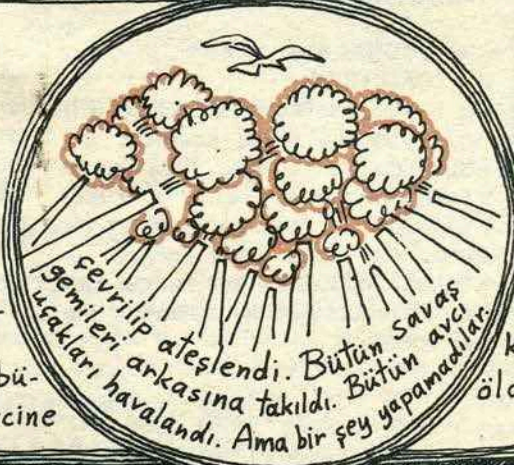 çevrilip ateşlendi. Bütün savaş
gemileri arkasına takıldı. Bütün avcı
uçakları havalandı. Ama bir şey yapamadılar.
bü-
cine